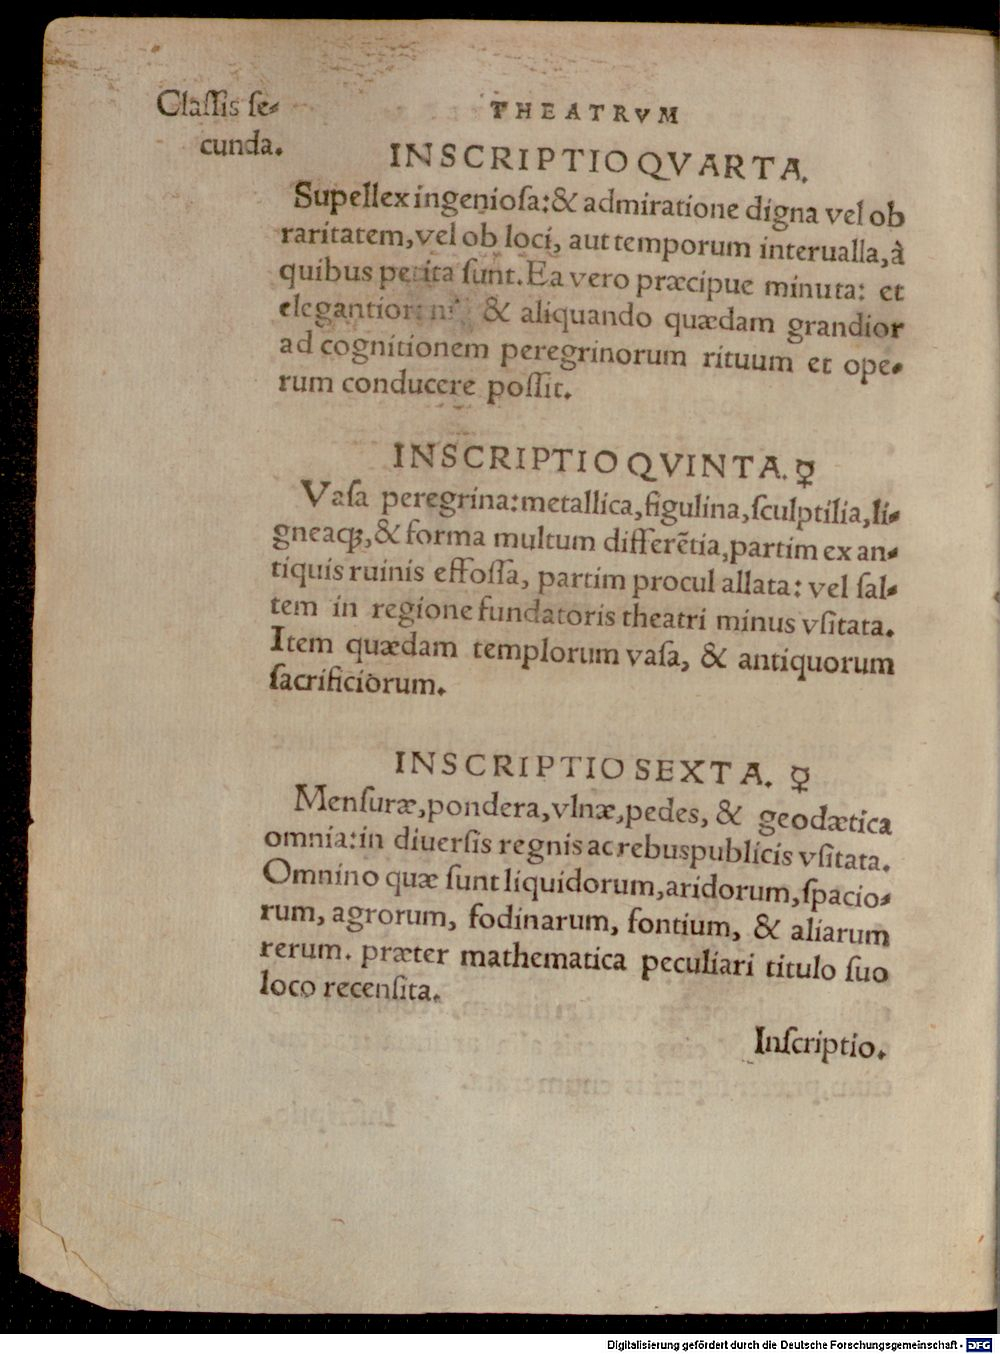 Classis se-
cunda.
THEATRVM
INSCRIPTIO QVARTA.
Supellex ingeniosa: & admiratione digna vel ob
raritatem, vel ob loci, aut temporum interualla, à
quibus petita sunt. Ea vero præcipue minuta: et
& aliquando quædam grandior
ad cognitionem peregrinorum rituum et ope-
rum conducere possit.
INSCRIPTIO QVINTA. ☿
Vasa peregrina: metallica, figulina, sculptilia, li-
gneaq;, & forma multum differẽtia, partim ex an-
tiquis ruinis effossa, partim procul allata: vel sal-
tem in regione fundatoris theatri minus vsitata.
Item quædam templorum vasa, & antiquorum
sacrificiorum.
INSCRIPTIO SEXTA. ☿
Mensuræ, pondera, vlnæ, pedes, & geodætica
omnia: in diuersis regnis ac rebuspublicis vsitata.
Omnino quæ sunt liquidorum, aridorum, spacio-
rum, agrorum, fodinarum, fontium, & aliarum
rerum. præter mathematica peculiari titulo suo
loco recensita.
Inscriptio.
Digitalisierung gefördert durch die Deutsche Forschungsgemeinschaft - DFG